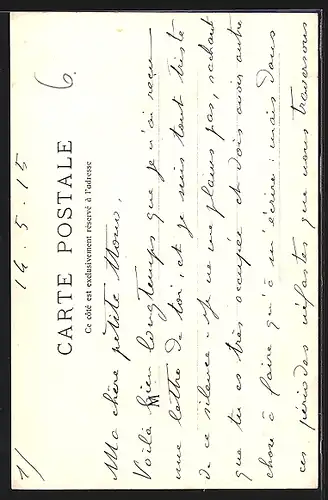 1/
14.5.15
6.
CARTE POSTALE
Ce côté est exclusivement réservé à l'adresse
Ma chère petite
Voilà bien longtemps que je n'ai reçu
une lettre de toi, et je suis tout triste
de ce silence. Je ne me plains pas, sachant
que tu es très occupée et dois avoir autre
chose à faire qu'à m'écrire: mais dans
ces périodes néfastes que nous traversons